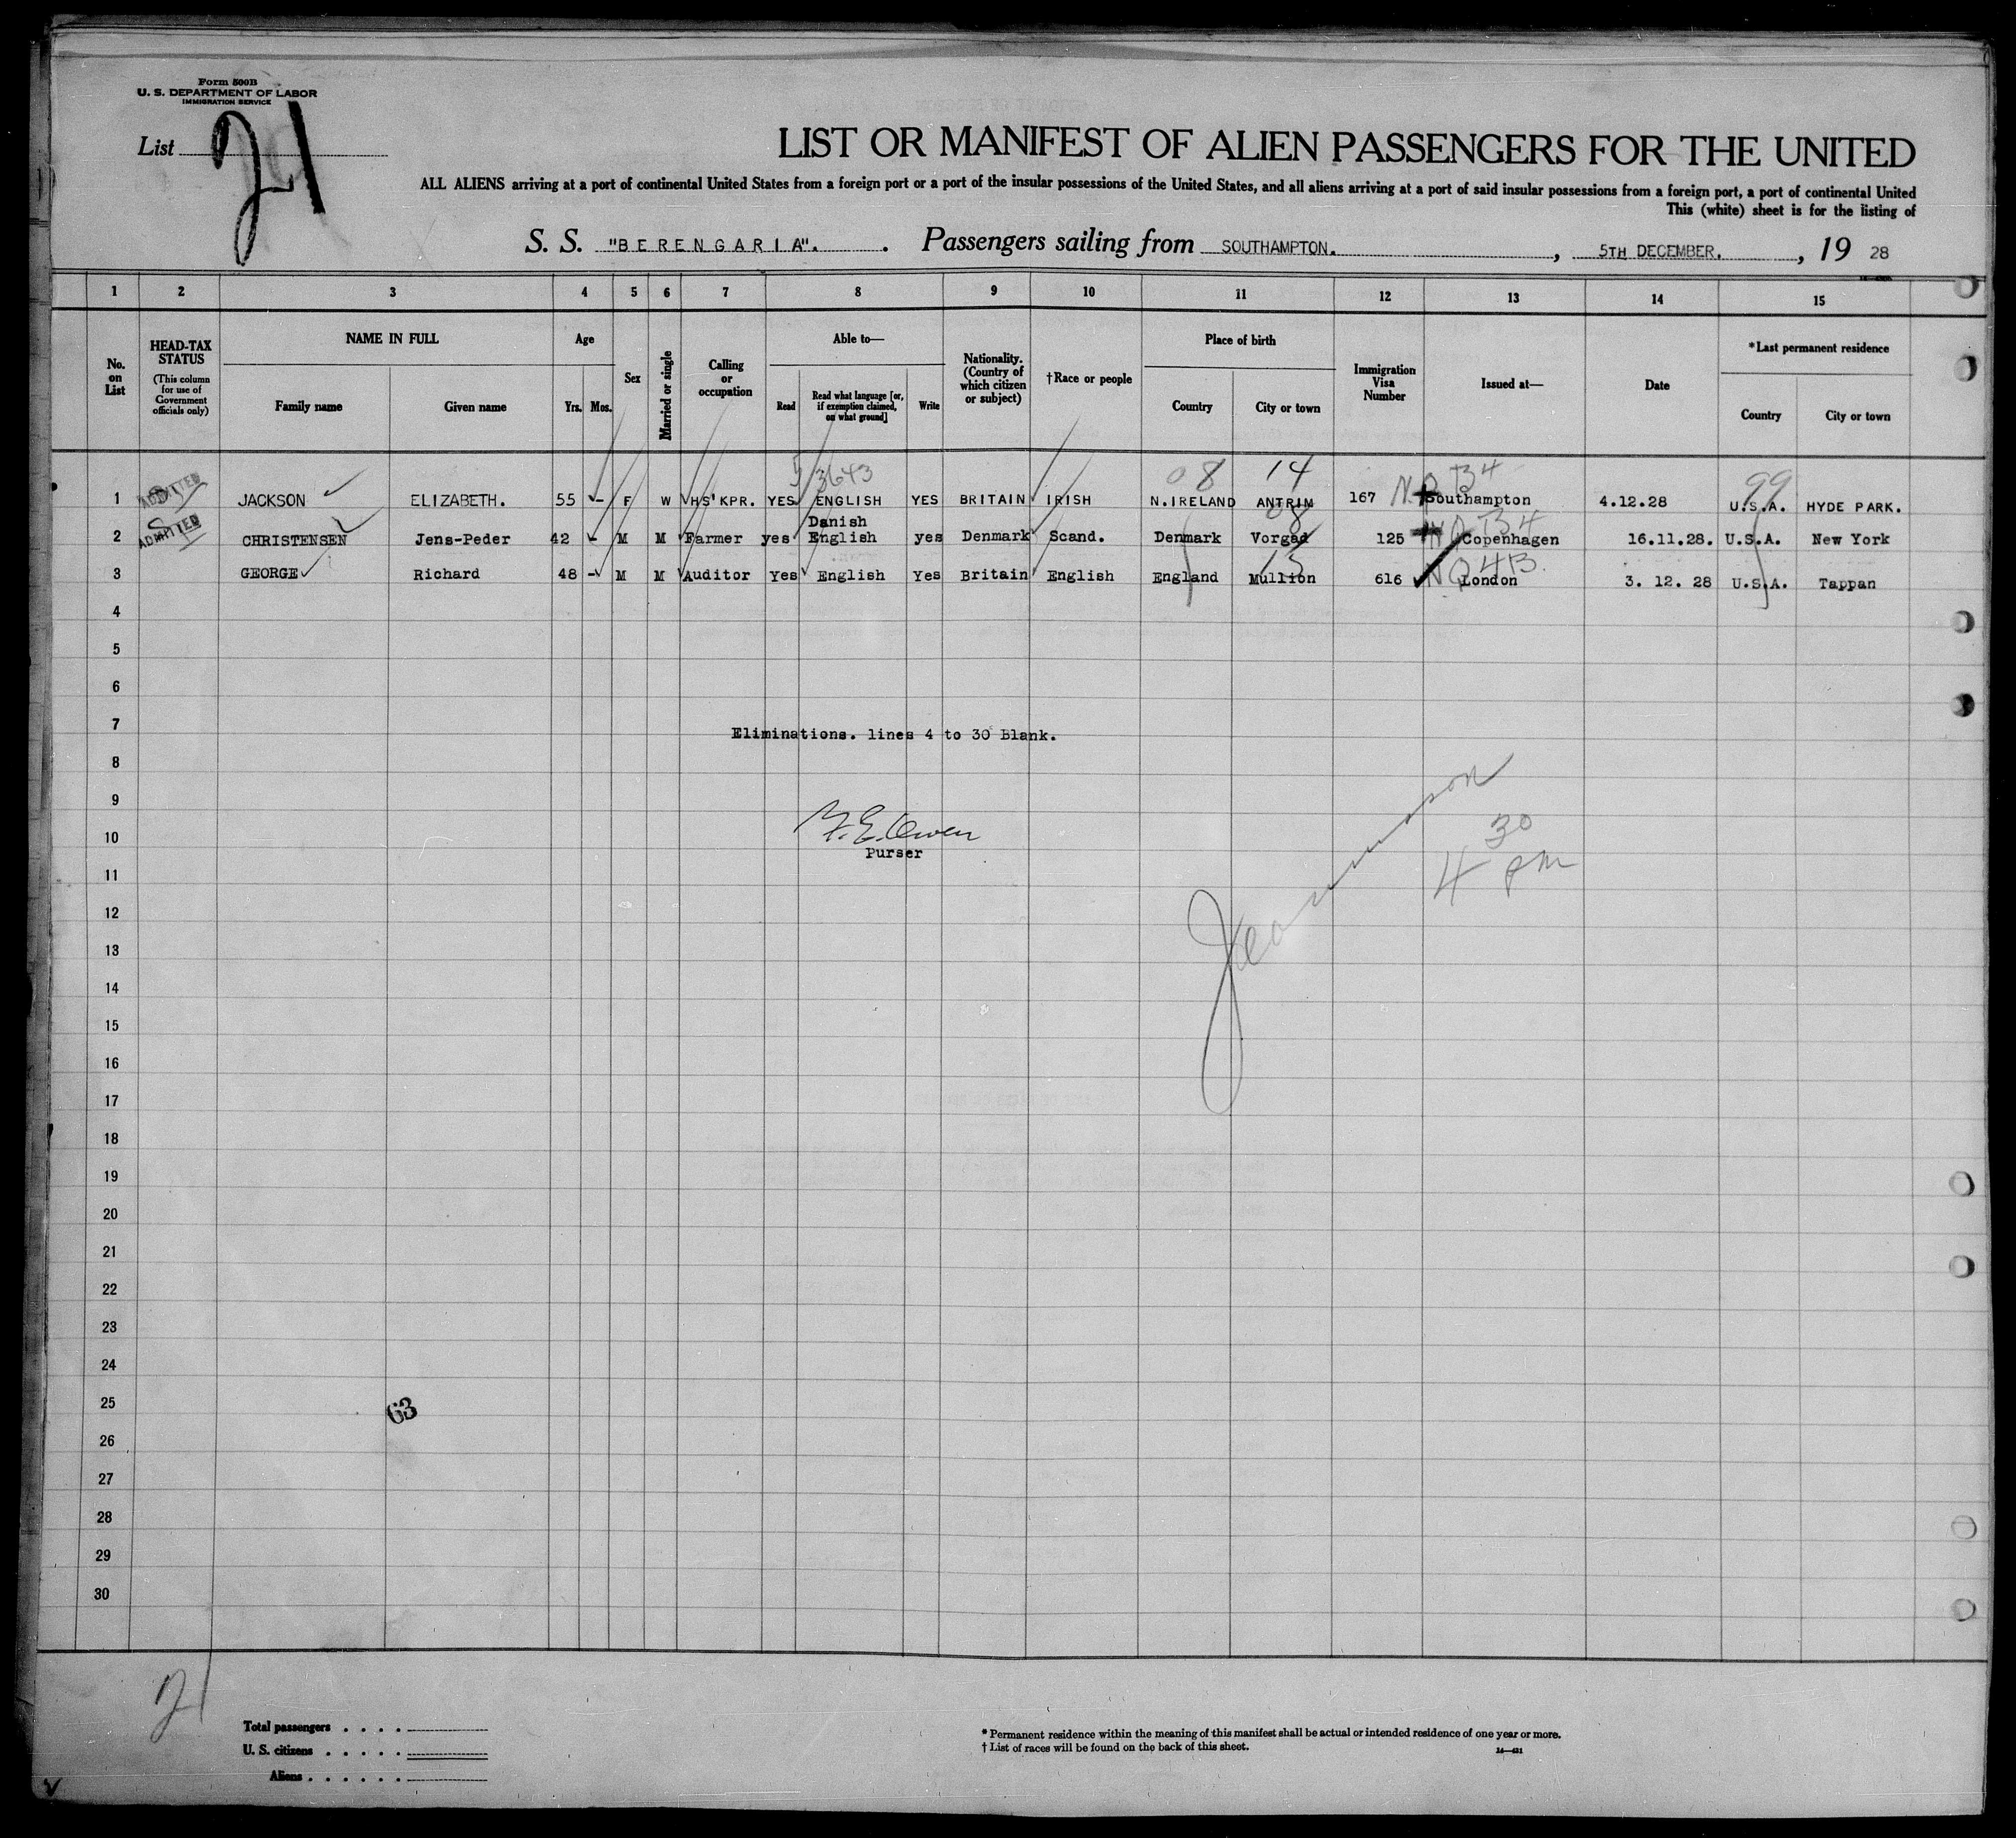 Form 500B
U. S. DEPARTMENT OF LABOR
IMMIGRATION SERVICE
List 21
LIST OR MANIFEST OF ALIEN PASSENGERS FOR THE UNITED
ALL ALIENS arriving at a port of continental United States from a foreign port or a port of the insular possessions of the United States, and all aliens arriving at a port of said insular possessions from a foreign port, a port of continental United
This (white) sheet is for the listing of
S. S. "BERENGARIA". Passengers sailing from SOUTHAMPTON. , 5TH DECEMBER. , 19 28
1 2 3 4 5 6 7 8 9 10 11 12 13 14 15
No. on List
HEAD-TAX STATUS (This column for use of Government officials only)
NAME IN FULL
Family name Given name
Age
Yrs. Mos.
Sex
Married or single
Calling or occupation
Able to—
Read Read what language [or, if exemption claimed, on what ground] Write
Nationality. (Country of which citizen or subject)
†Race or people
Place of birth
Country City or town
Immigration Visa Number
Issued at—
Date
*Last permanent residence
Country City or town
5/3643 08 14 N.Q B4 99
1 ADMITTED JACKSON ELIZABETH. 55 - F W HS'KPR. YES ENGLISH YES BRITAIN IRISH N.IRELAND ANTRIM 167 Southampton 4.12.28 U.S.A. HYDE PARK.
08 B4
2 ADMITTED CHRISTENSEN Jens-Peder 42 - M M Farmer yes Danish English yes Denmark Scand. Denmark Vorgød 125 Copenhagen 16.11.28. U.S.A. New York
13 NQ 4B.
3 GEORGE Richard 48 - M M Auditor Yes English Yes Britain English England Mullion 616 London 3. 12. 28 U.S.A. Tappan
4
5
6
7
Eliminations. lines 4 to 30 Blank.
8
9
10
Owen
Purser
4 30 PM
11
12
13
14
15
16
17
18
19
20
21
22
23
24
25
63
26
27
28
29
30
21
Total passengers . . . .
U. S. citizens . . . . .
Aliens . . . . . .
* Permanent residence within the meaning of this manifest shall be actual or intended residence of one year or more.
† List of races will be found on the back of this sheet.
14—421